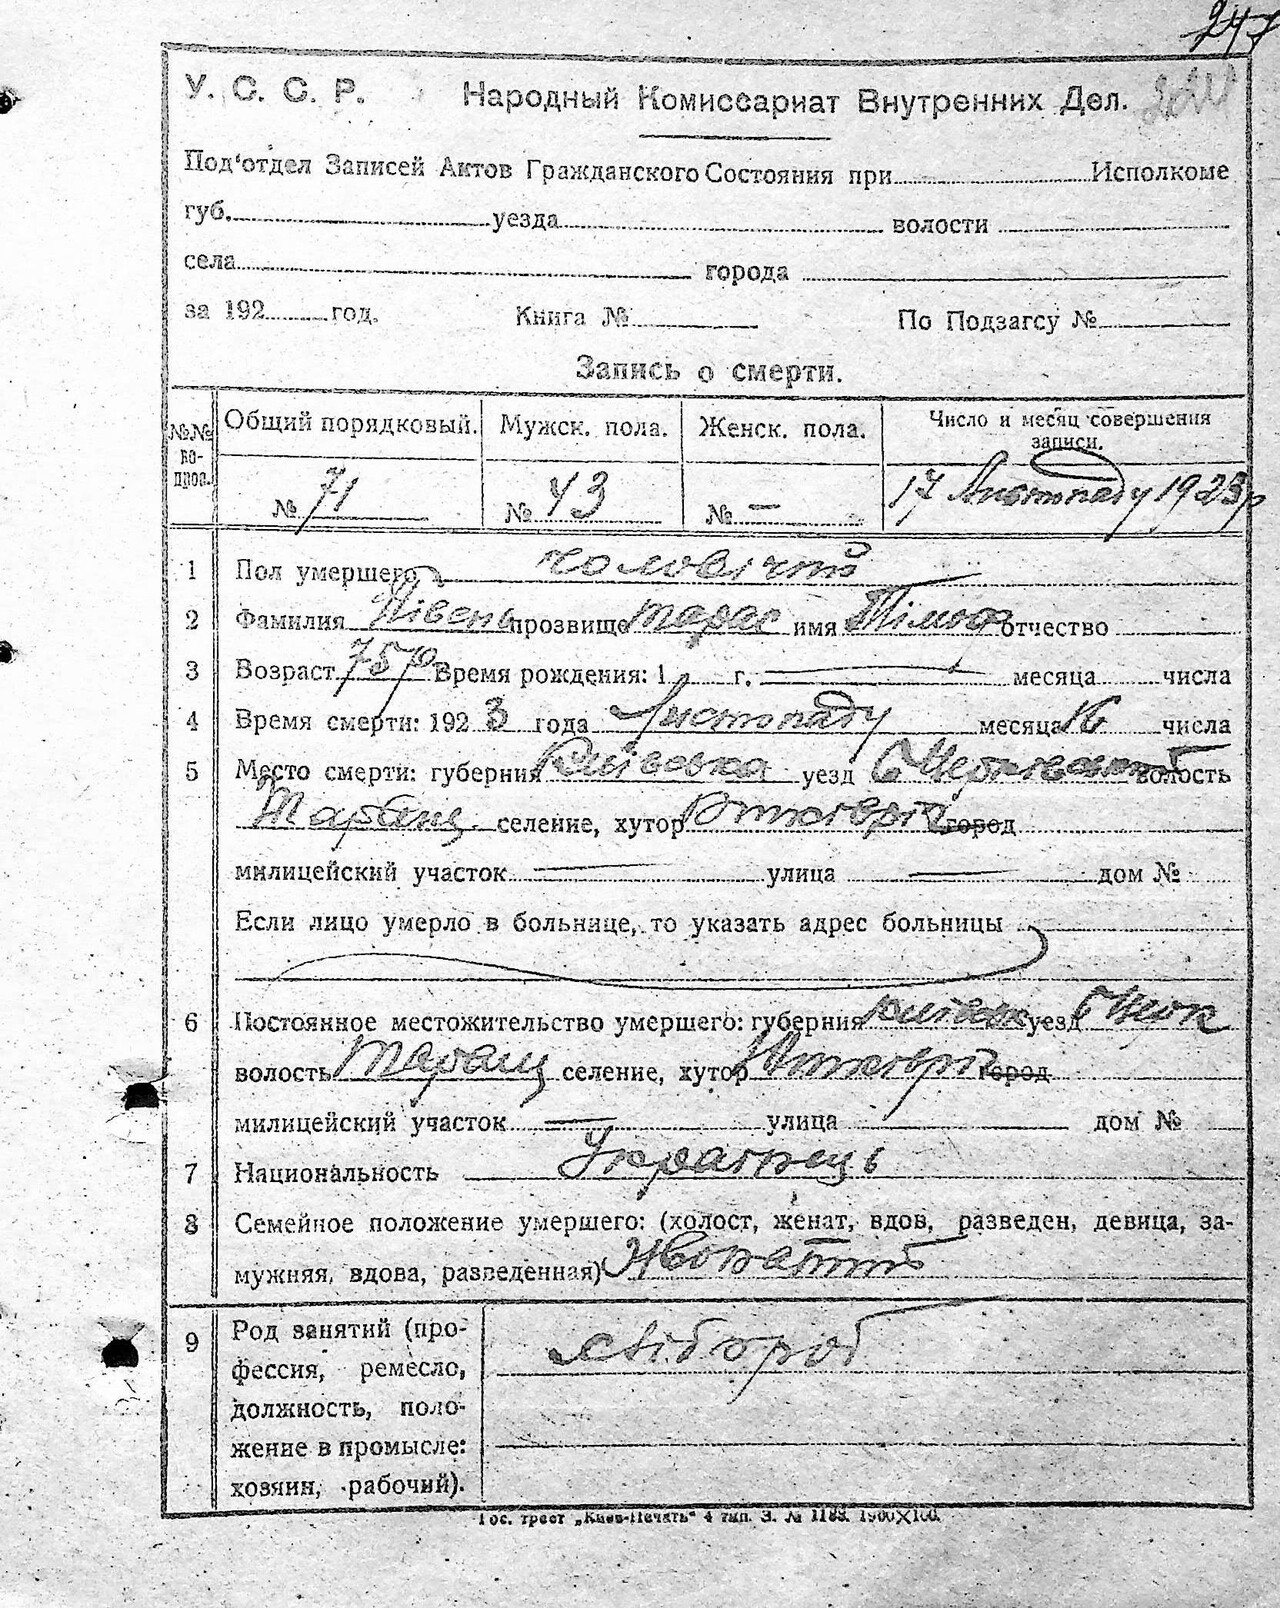 247
224
У. С. С. Р. Народный Комиссариат Внутренних Дел.
Под'отдел Записей Актов Гражданского Состояния при Исполкоме
губ. уезда волости
села города
за 192 год. Книга № По Подзагсу №
Запись о смерти.
№№ вопрос. Общий порядковый. Мужск. пола. Женск. пола. Число и месяц совершения записи.
№ 71 № 43 № — 17 Листопаду 1923р
1 Пол умершего чоловічий
2 Фамилия Півень прозвище Тарас имя Тімоф отчество
3 Возраст 75р Время рождения: 1 г. — месяца числа
4 Время смерти: 1923 года Листопаду месяца 16 числа
5 Место смерти: губерния Київська уезд волость
Таращ селение, хутор город
милицейский участок — улица — дом №
Если лицо умерло в больнице, то указать адрес больницы
6 Постоянное местожительство умершего: губерния Київськ уезд
волость Таращ селение, хутор город
милицейский участок — улица — дом №
7 Национальность Українець
8 Семейное положение умершего: (холост, женат, вдов, разведен, девица, за-
мужняя, вдова, разведенная) Жонатий
9 Род занятий (про-
фессия, ремесло,
должность, поло-
жение в промысле:
хозяин, рабочий).
хлібороб
Гос. трест „Киев-Печать" 4 тип. З. № 1183. 1900×100.